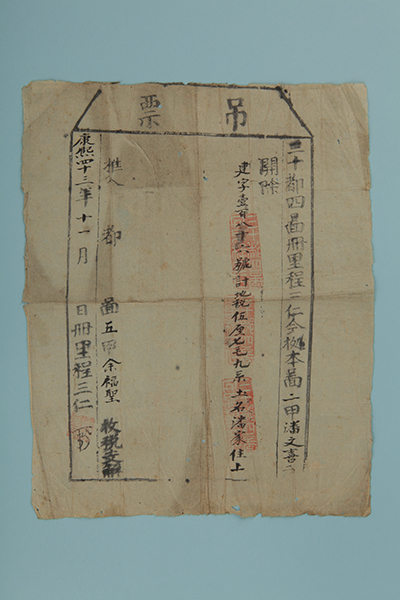 吊票
二十都四圖冊里程三仁今按本圖二甲潘文喜
開除
建字壹百八十六號計地稅伍厘七毛九系土名潘家住上
推入 都 圖五甲余福聖 收稅支解
康熙四十三年十一月 日冊里程三仁